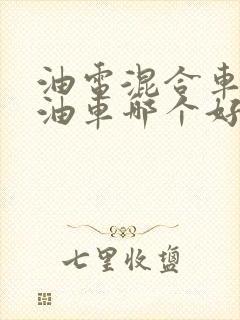 油電混合車
油車哪个好
七里收鹽